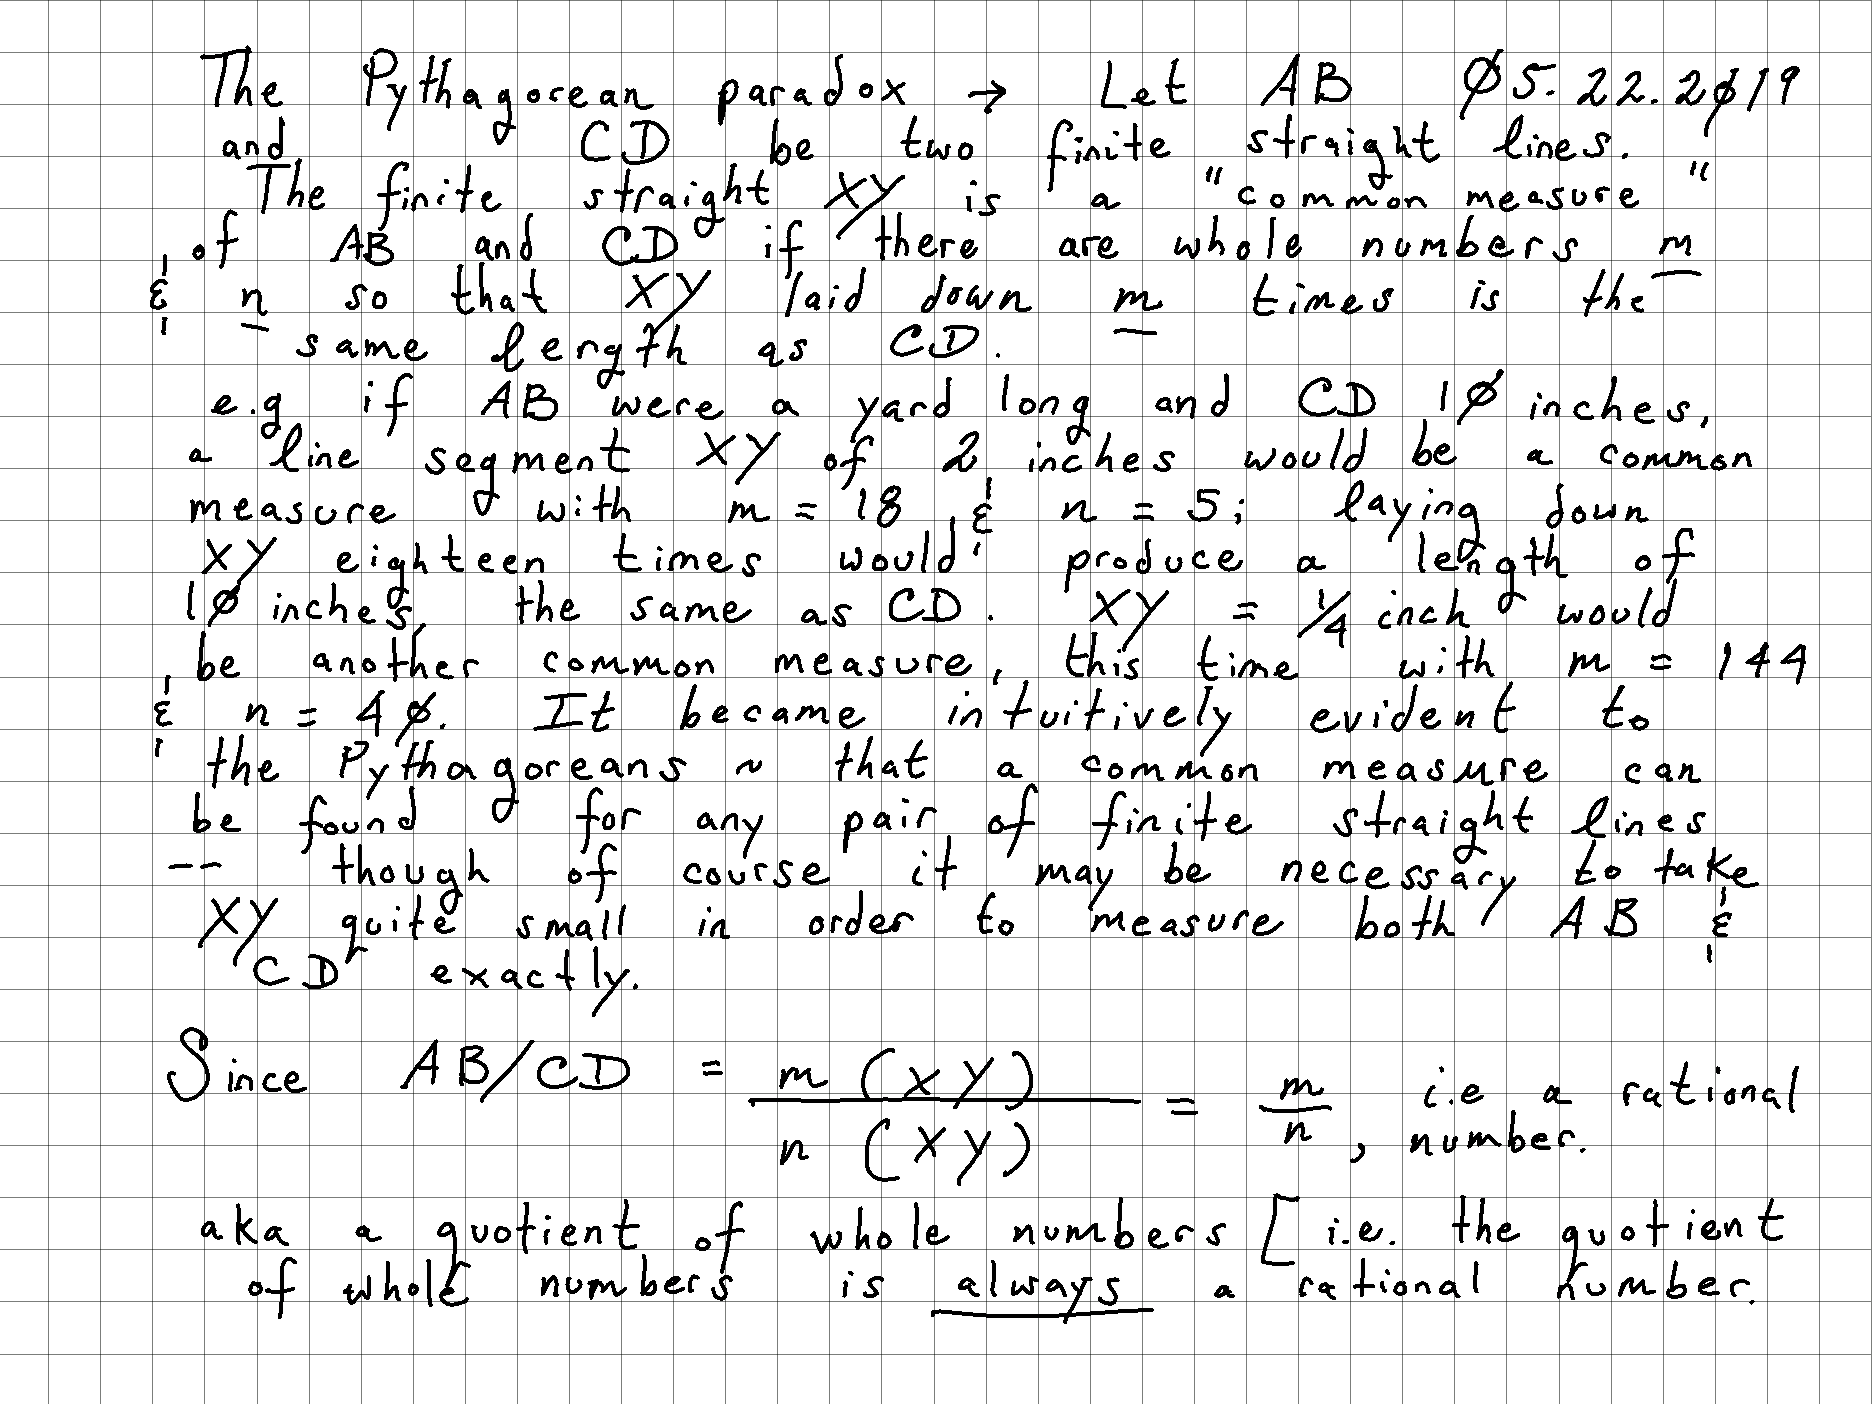 The Pythagorean paradox → Let AB 05.22.2019
and CD be two finite straight lines.
The finite straight XY is a "common measure"
of AB and CD if there are whole numbers m
& n so that XY laid down m times is the
same length as CD.
e.g if AB were a yard long and CD 10 inches,
a line segment XY of 2 inches would be a common
measure with m = 18 & n = 5; laying down
XY eighteen times would produce a length of
10 inches, the same as CD. XY = 1/4 inch would
be another common measure, this time with m = 144
& n = 40. It became intuitively evident to
the Pythagoreans ~ that a common measure can
be found for any pair of finite straight lines
-- though of course it may be necessary to take
XY quite small in order to measure both AB &
CD exactly.
Since AB/CD = m (XY) / n (XY) = m/n, i.e a rational
number.
aka a quotient of whole numbers [i.e. the quotient
of whole numbers is always a rational number.